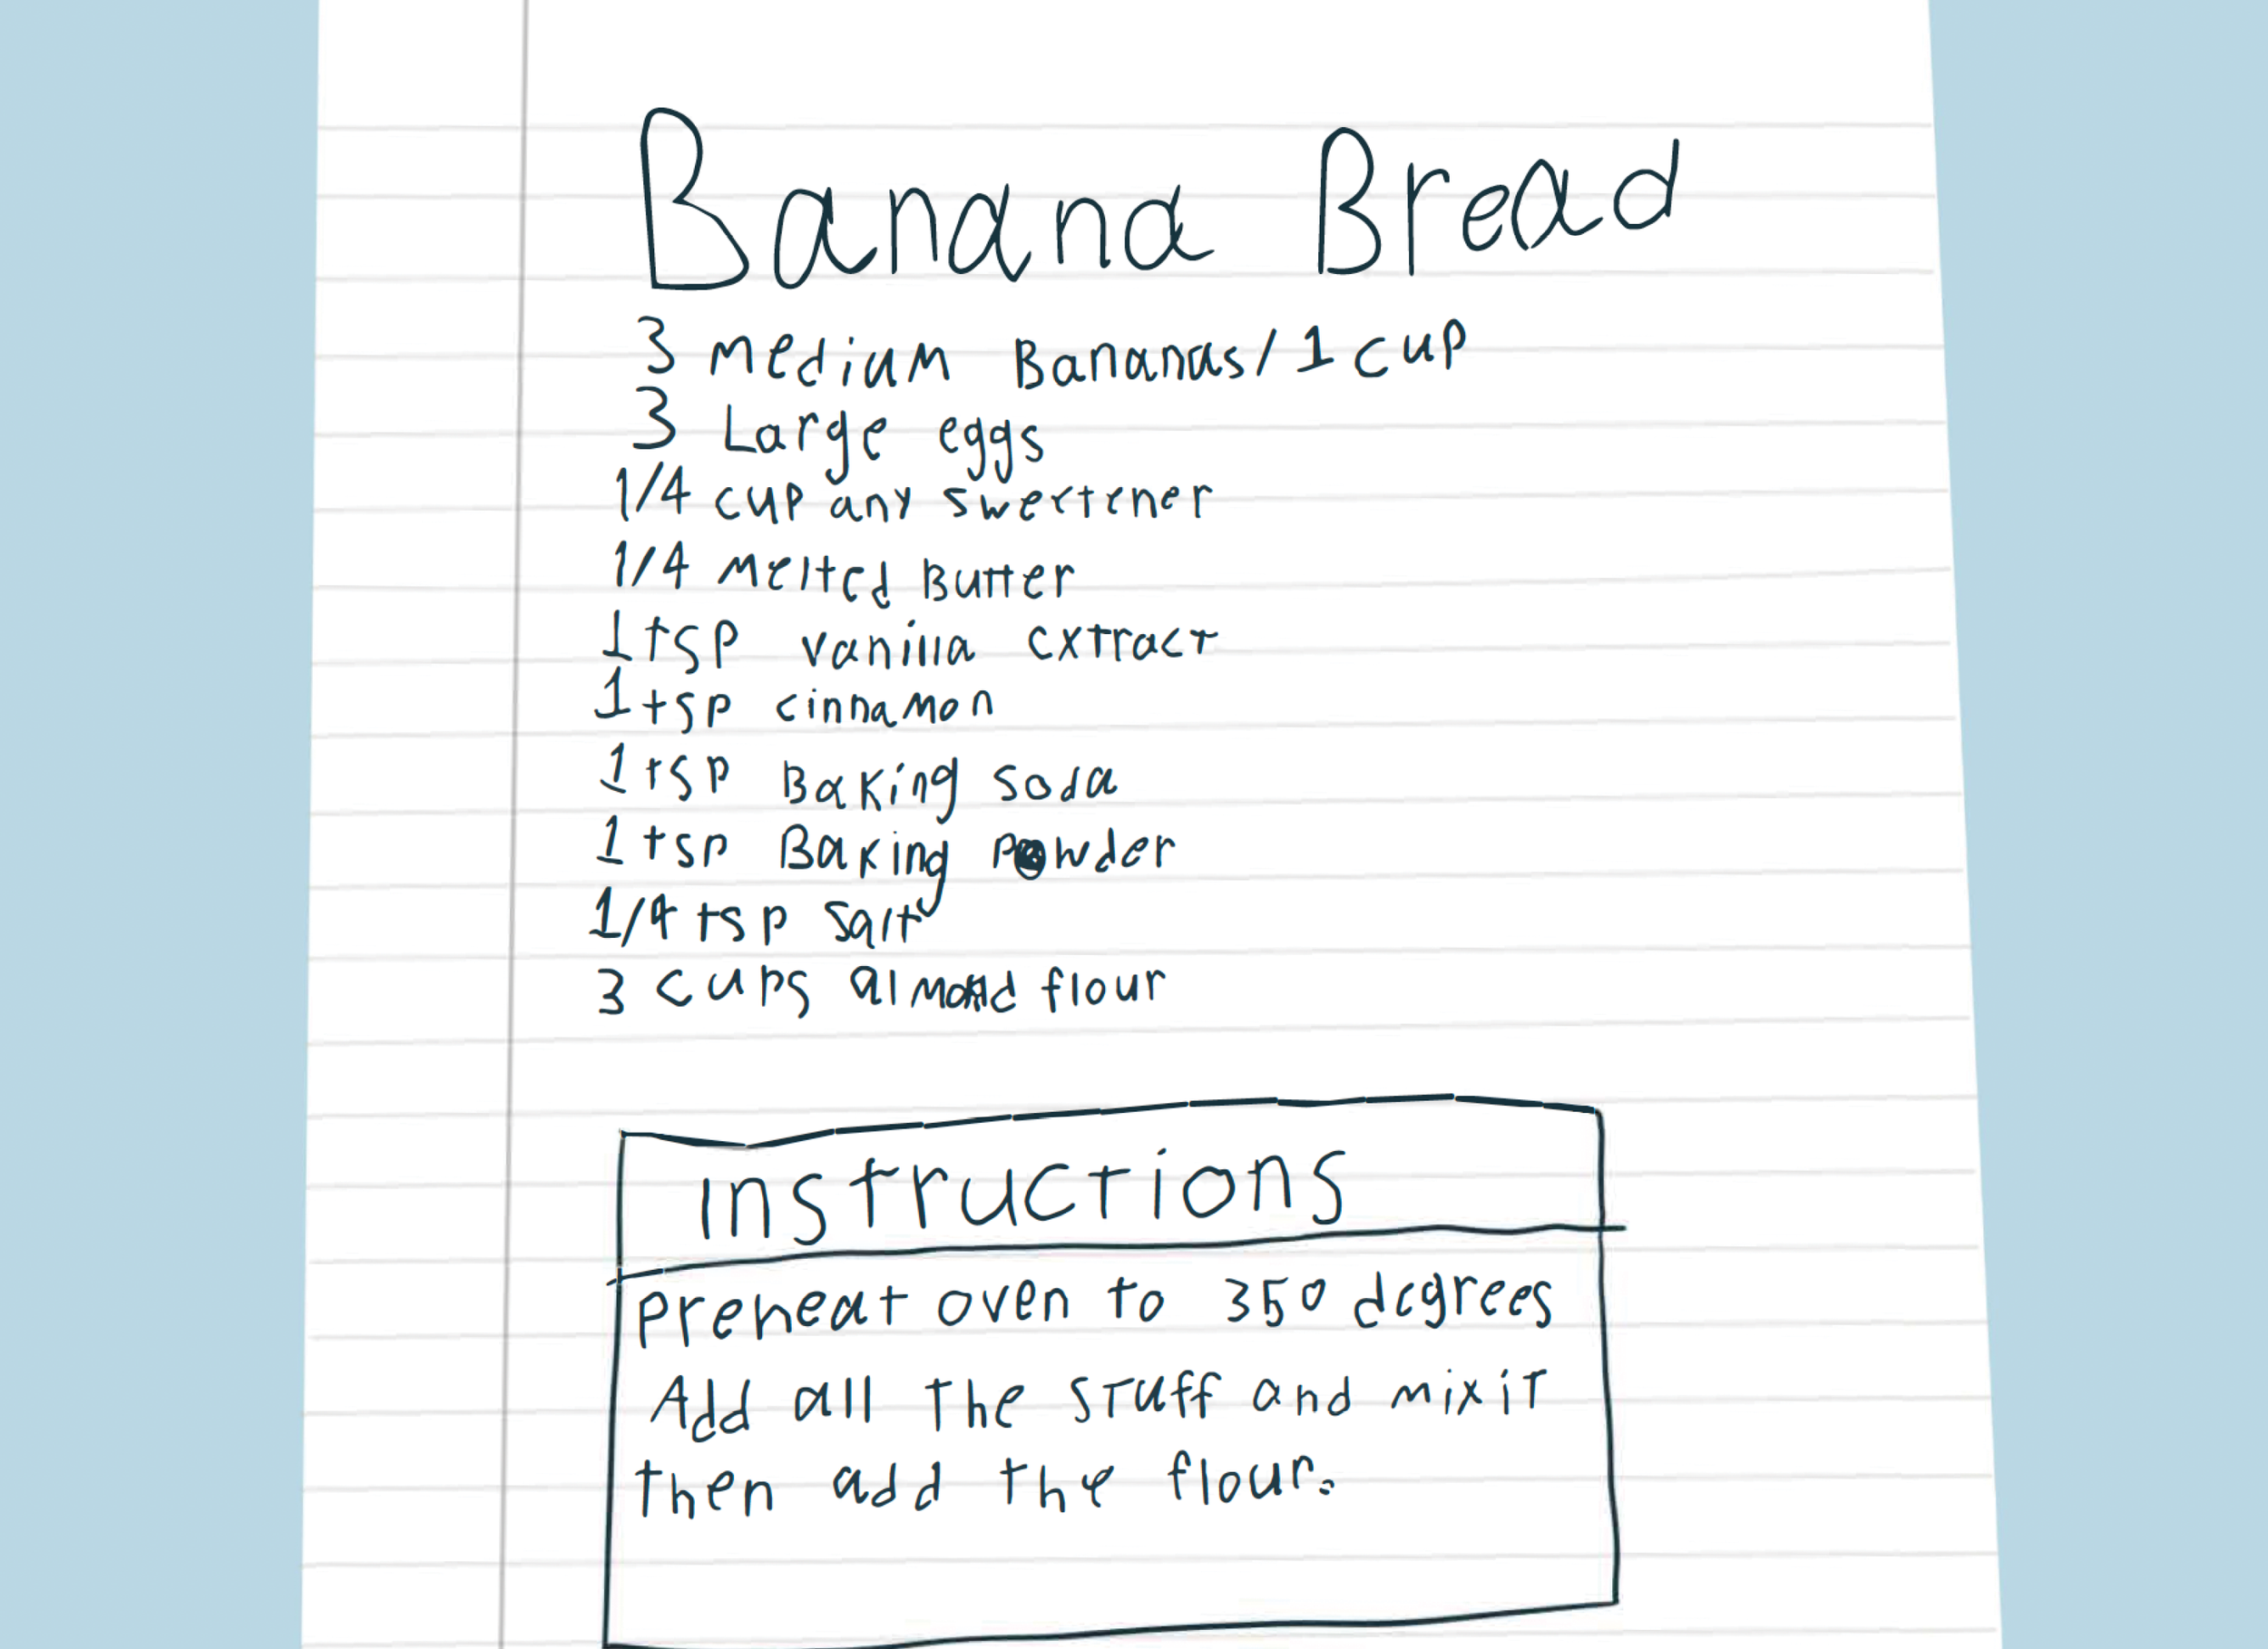 Banana Bread
3 medium Bananas/1 cup
3 Large eggs
1/4 cup any sweetener
1/4 melted Butter
1 tsp vanilla extract
1 tsp cinnamon
1 tsp Baking soda
1 tsp Baking powder
1/4 tsp salt
3 cups almond flour
instructions
preheat oven to 350 degrees
Add all the stuff and mix it
then add the flour.